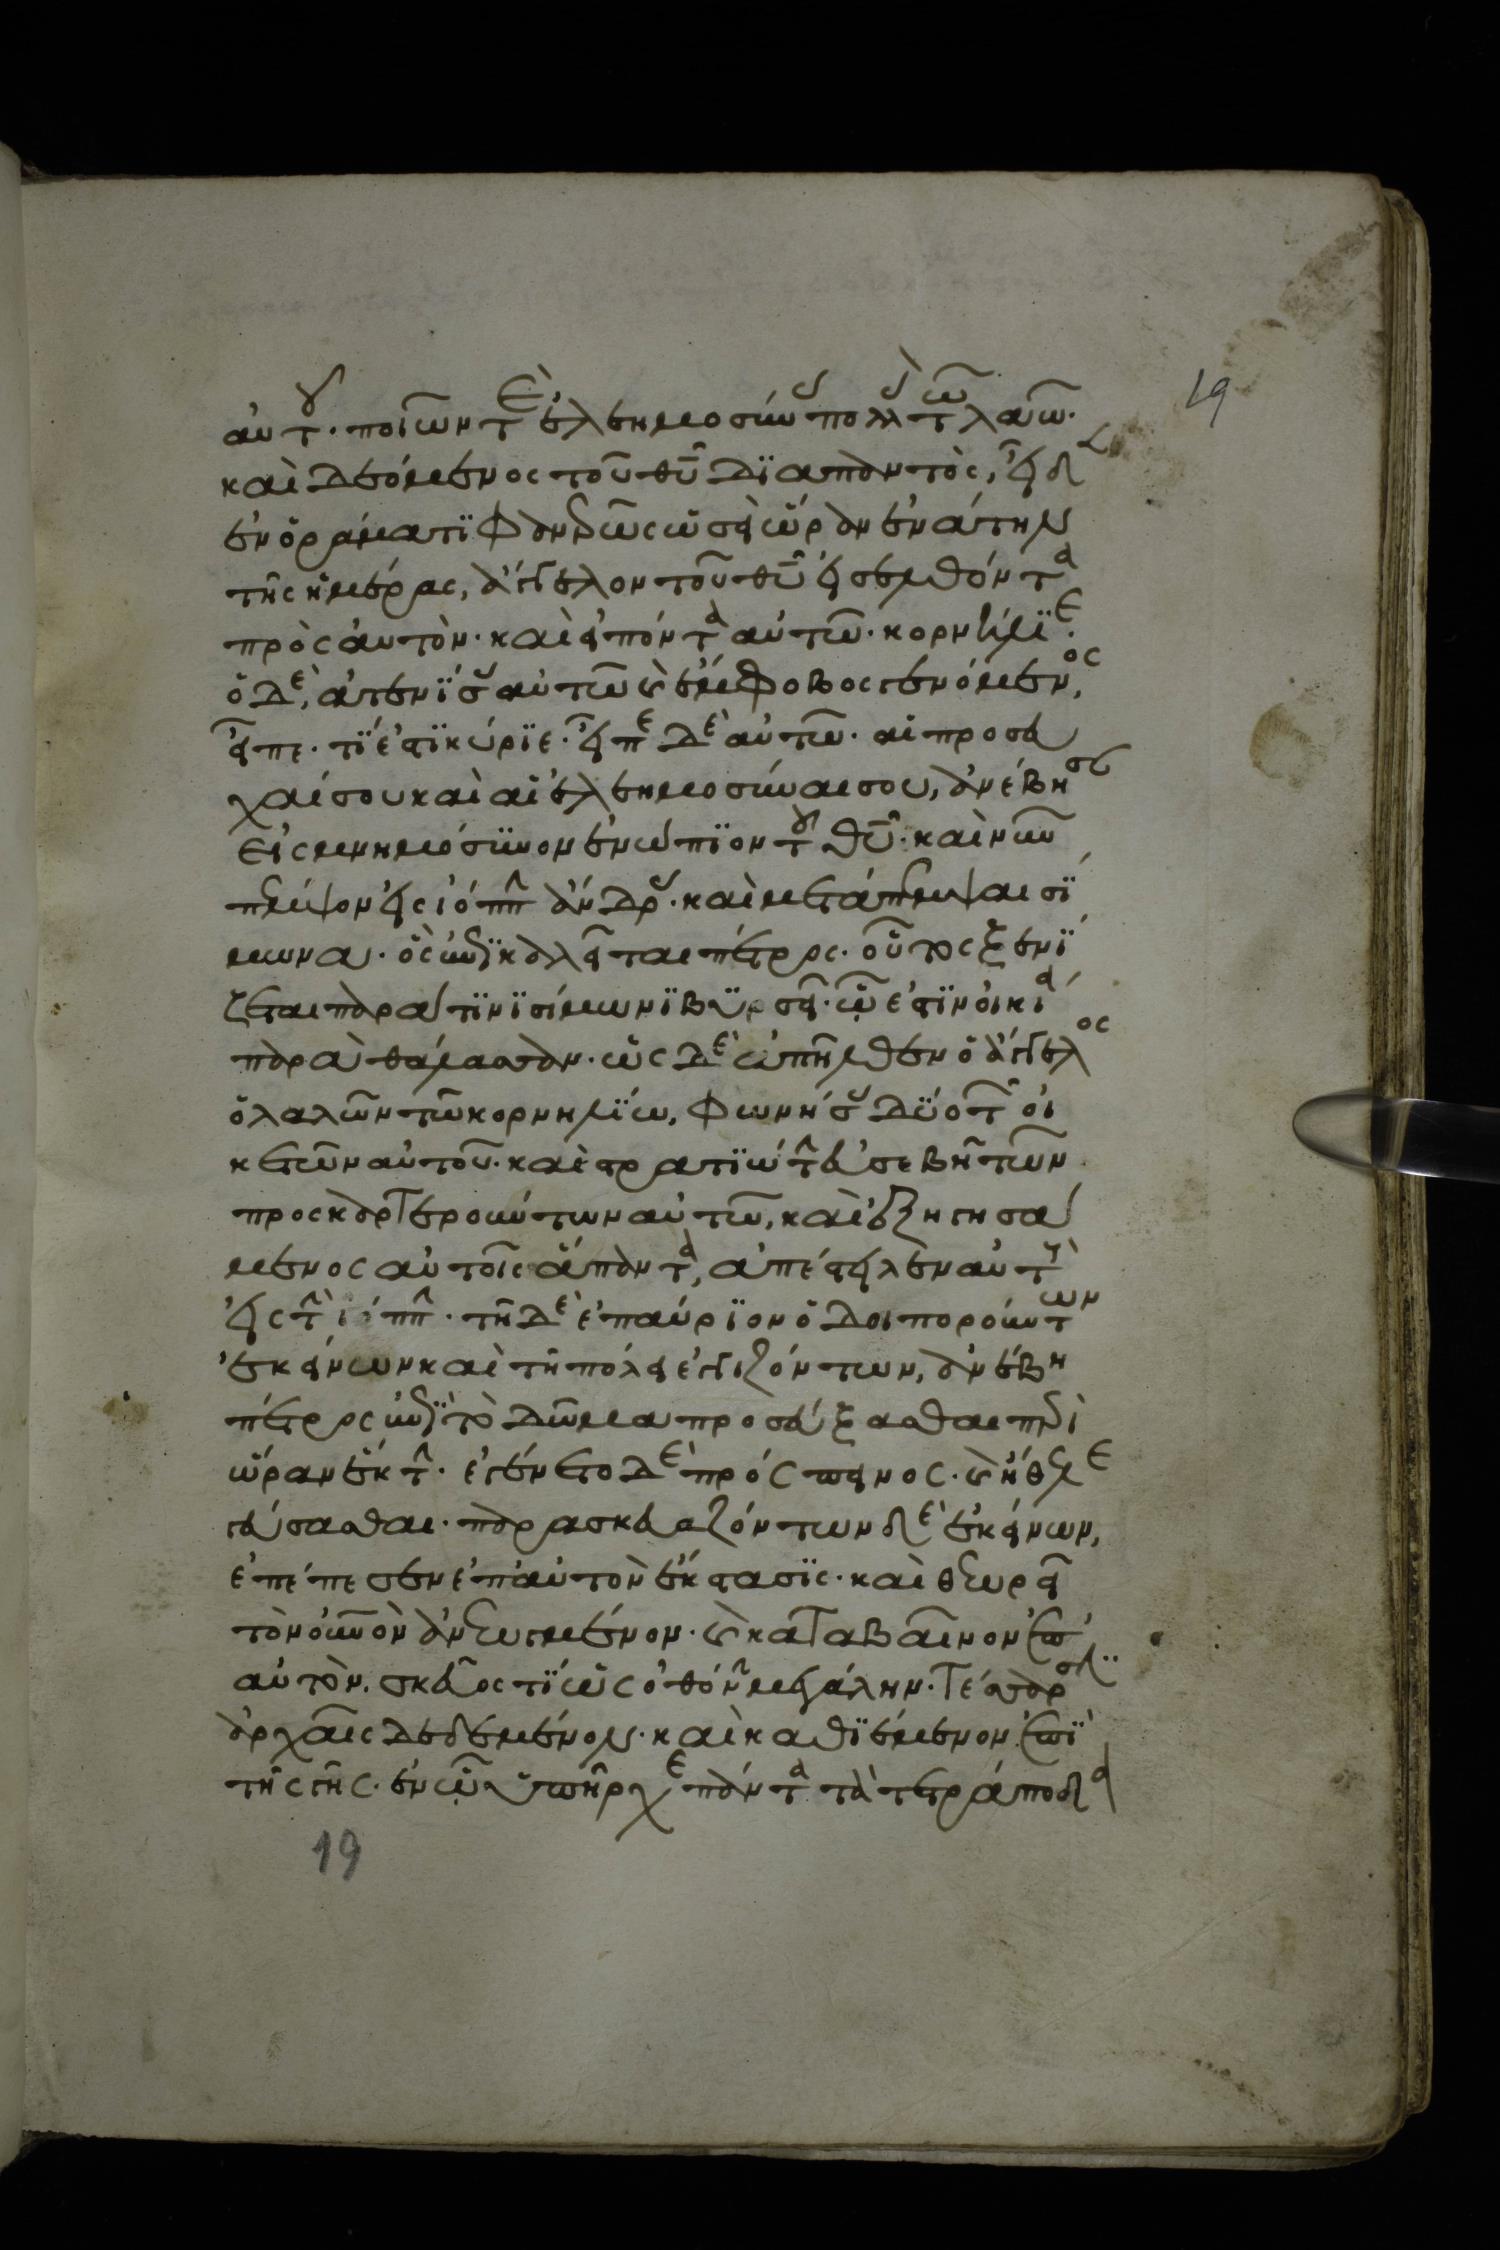 19
αὐτοῦ· ποιῶν τὲ ἐλεημοσύνας πολλὰς τῶ λαῶ·
καὶ δεόμενος τοῦ θῦ διαπαντὸς, εἶδεν
ἐν ὁράματι φανερῶς ὡσεὶ ὥραν ἐνάτην
τῆς ἡμέρας, ἄγγελον τοῦ θῦ εἰσελθόντα
πρὸς αὐτὸν· καὶ εἰπόντα αὐτῶ· κορνήλιε·
ὁ δὲ, ἀτενίσας αὐτῶ καὶ ἔμφοβος γενόμενος,
εἶπε· τί ἐστι κύριε· εἶπε δὲ αὐτῶ· αἱ προσευ
χαί σου καὶ αἱ ἐλεημοσύναι σου, ἀνέβησαν
εἰς μνημόσυνον ἐνώπιον τοῦ θῦ· καὶ νῦν
πέμψον εἰς ἰόππην ἄνδρας· καὶ μετάπεμψαι σί
μωνα· ὃς ἐπικαλεῖται πέτρος· οὗτος ξενί
ζεται παρά τινι σίμωνι βυρσεῖ· ὧ ἐστιν οἰκία
παρὰ θάλασσαν· ὡς δὲ ἀπῆλθεν ὁ ἄγγελος
ὁ λαλῶν τῶ κορνηλίω, φωνήσας δύο τῶν οἰ
κετῶν αὐτοῦ· καὶ στρατιώτην εὐσεβῆ τῶν
προσκαρτερούντων αὐτῶ, καὶ ἐξηγησά
μενος αὐτοῖς ἅπαντα, ἀπέστειλεν αὐτοὺς
εἰς τὴν ἰόππην· τῆ δὲ ἐπαύριον ὁδοιπορούντων
ἐκείνων καὶ τῆ πόλει ἐγγιζόντων, ἀνέβη
πέτρος ἐπὶ τὸ δῶμα προσεύξασθαι περὶ
ὥραν ἕκτην· ἐγένετο δὲ πρόσπεινος· καὶ ἤθελε
γεύσασθαι· παρασκευαζόντων δὲ ἐκείνων,
ἐπέπεσεν ἐπ' αὐτὸν ἔκστασις· καὶ θεωρεῖ
τὸν οὐνὸν ἀνεωγμένον· καὶ καταβαῖνον ἐπ'
αὐτὸν. σκεῦος τί ὡς ὀθόνην μεγάλην· τέσσαρσιν
ἀρχαῖς δεδεμένον· καὶ καθιέμενον ἐπὶ
τῆς γῆς· ἐν ὧ ὑπῆρχε πάντα τὰ τετράποδα
19